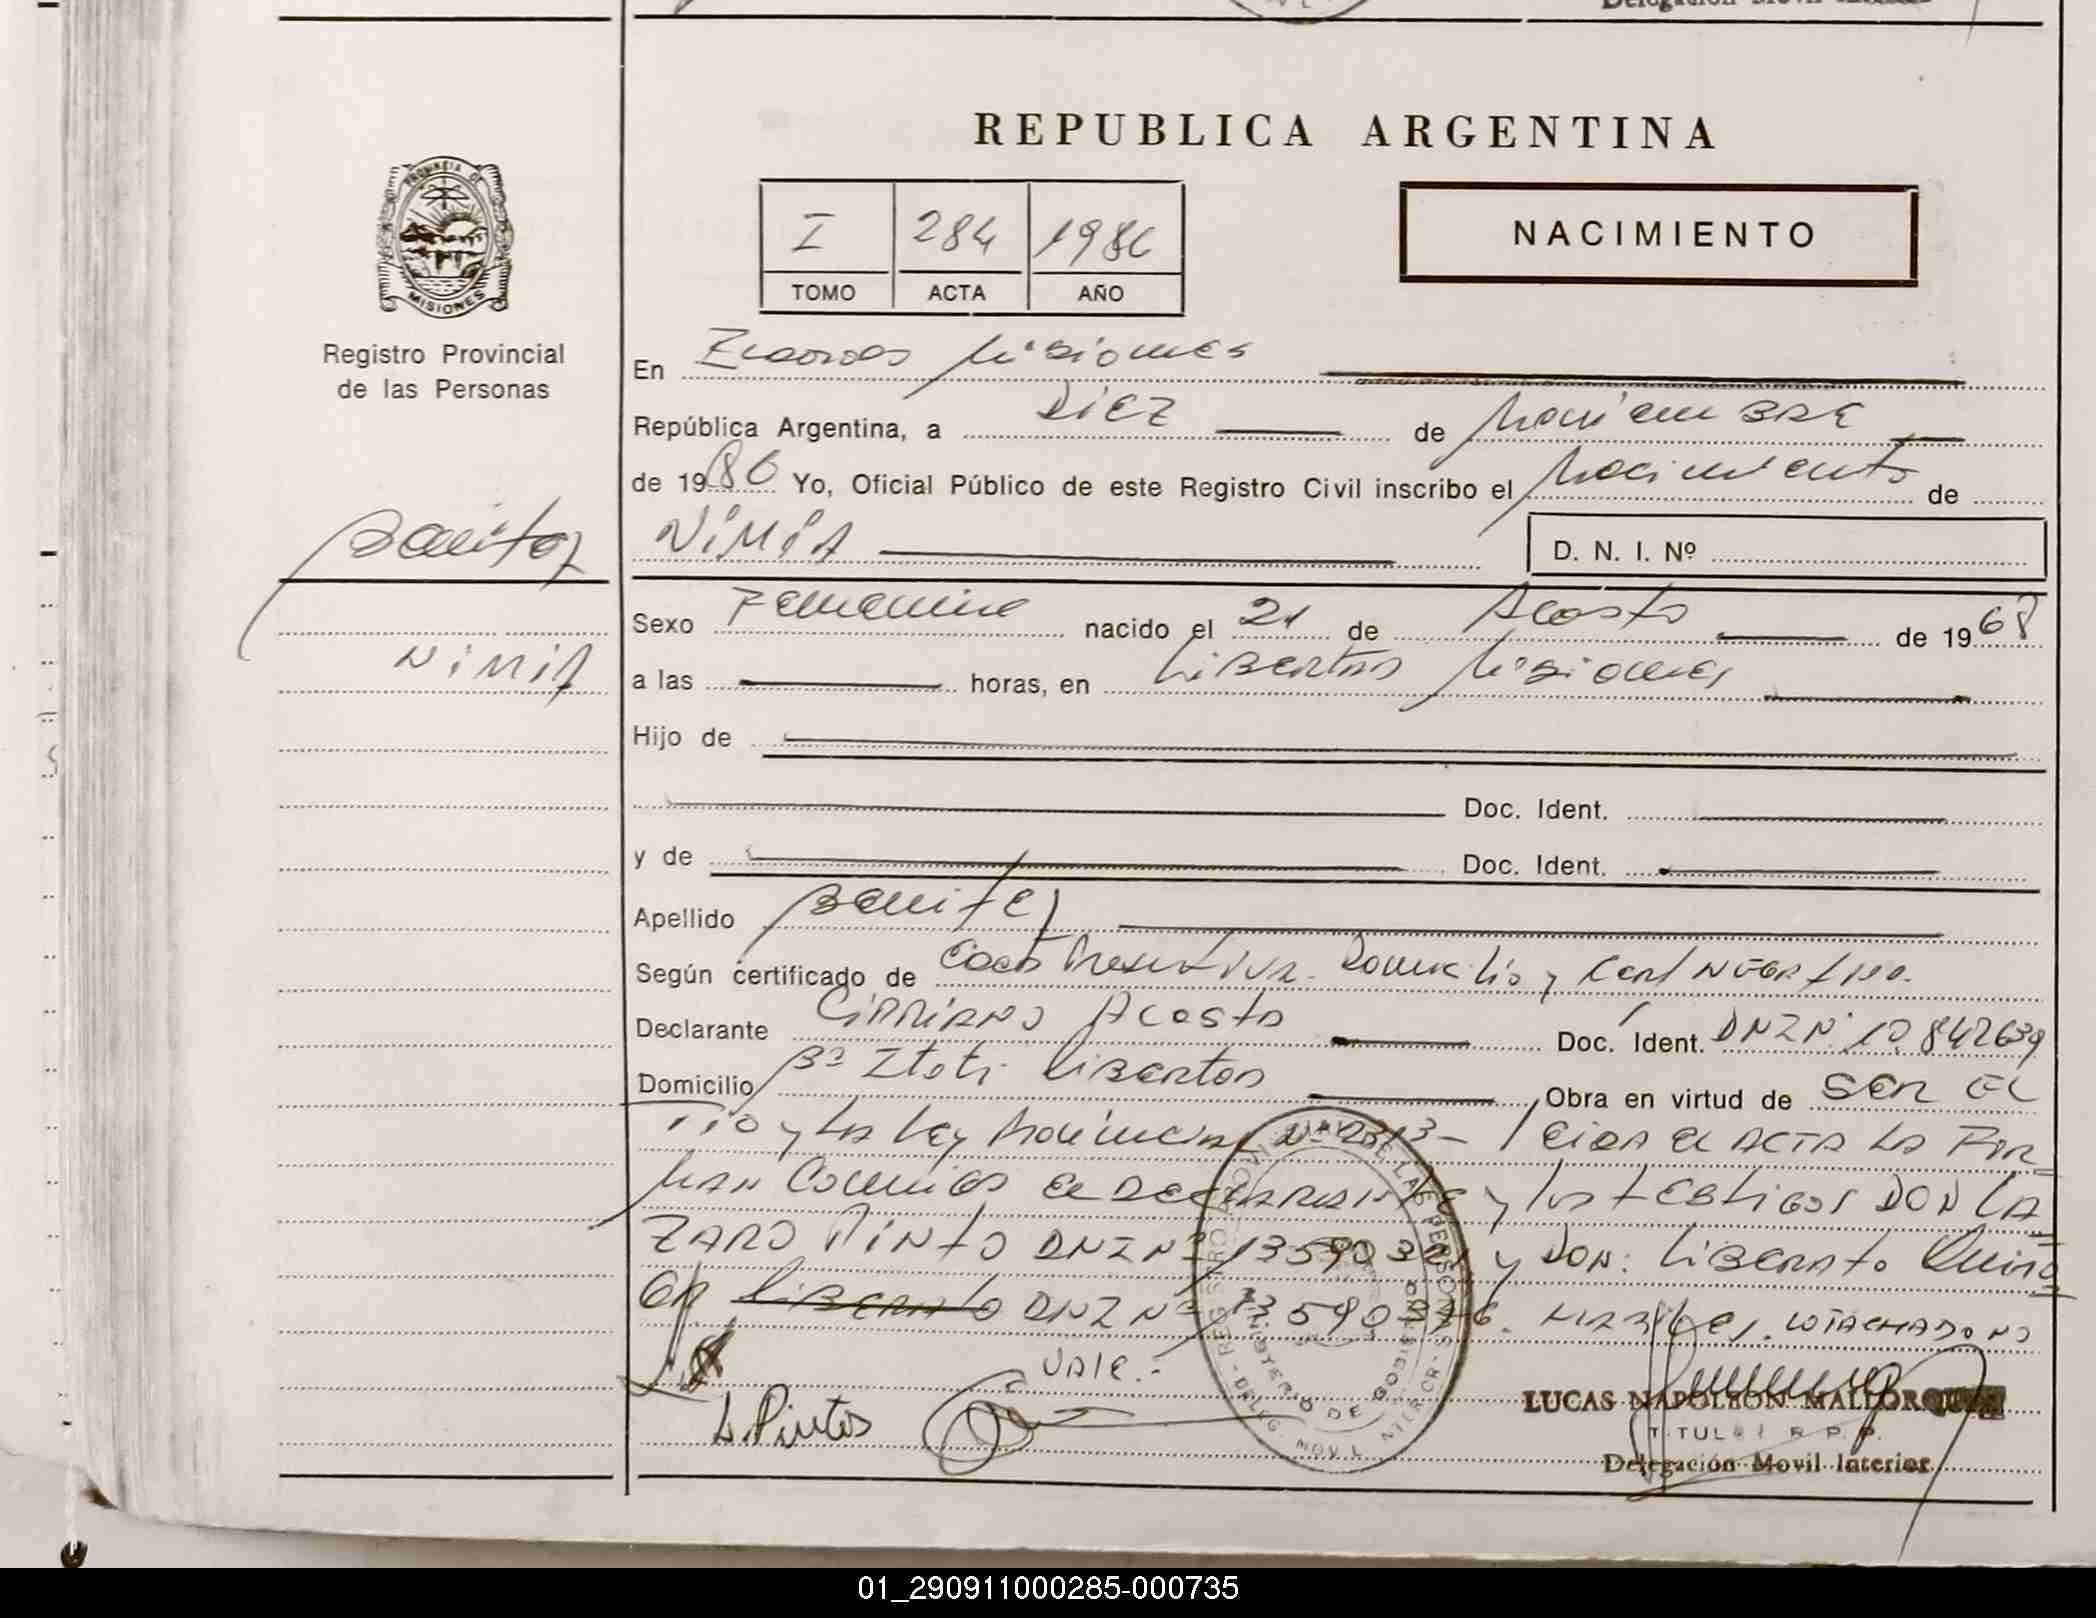 REPUBLICA ARGENTINA
PROVINCIA DE
MISIONES
Registro Provincial
de las Personas
I 284 1986
TOMO ACTA AÑO
NACIMIENTO
En Misiones
República Argentina, a DIEZ de Noviembre
de 1986 Yo, Oficial Público de este Registro Civil inscribo el Nacimiento de
Benitez
NIMIA
D. N. I. Nº
NIMIA
Sexo Femenino nacido el 21 de Agosto de 1968
a las horas, en Libertad Misiones
Hijo de
Doc. Ident.
y de Doc. Ident.
Apellido Benitez
Según certificado de Domicilio y Cert Negativo.
Declarante Cipriano Acosta Doc. Ident. DNI Nº 10.842639
Domicilio Bº Libertad Obra en virtud de SER EL
TIO y LA Ley Provincial Nº 2313- Leida el ACTA LA FIR
MAN Conmigo el DECLARANTE y los testigos DON LA
ZARO PINTO DNI Nº 13590321 y DON: Liberato
Liberato DNI Nº 13590376. LO TACHADO NO
VALE.-
L. Pintos
REGISTRO PROVINCIAL DE LAS PERSONAS
MINISTERIO DE GOBIERNO
DELEG. MOVIL INTERIOR
LUCAS NAPOLEON MALLORQUIN
TITULAR R. P. P.
Delegación Movil Interior
01_290911000285-000735